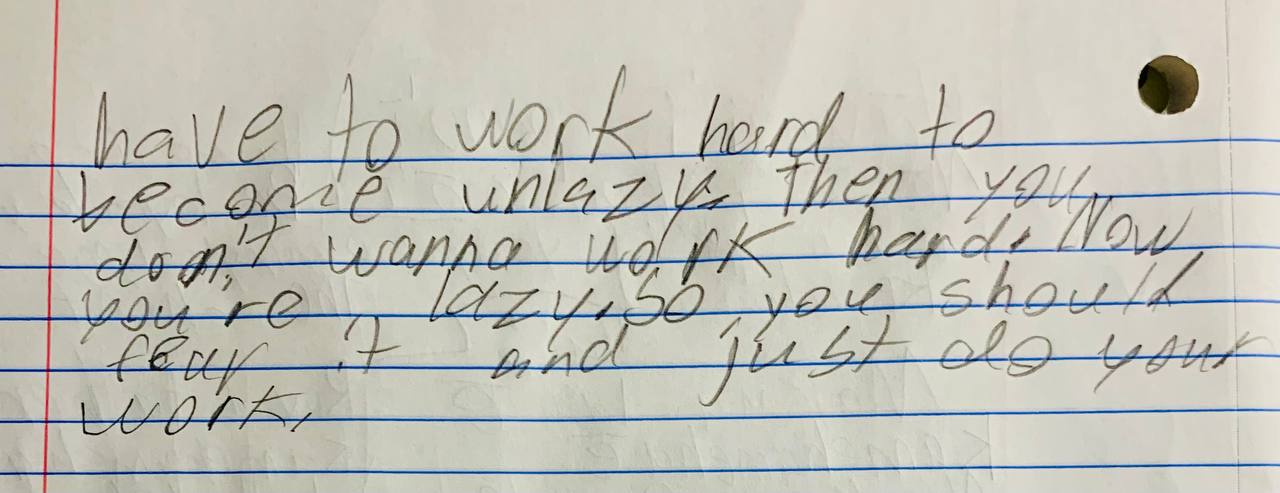 have to work hard to
become unlazy. Then you
don't wanna work hard. Now
you're lazy. So you should
fear it and just do your
work.